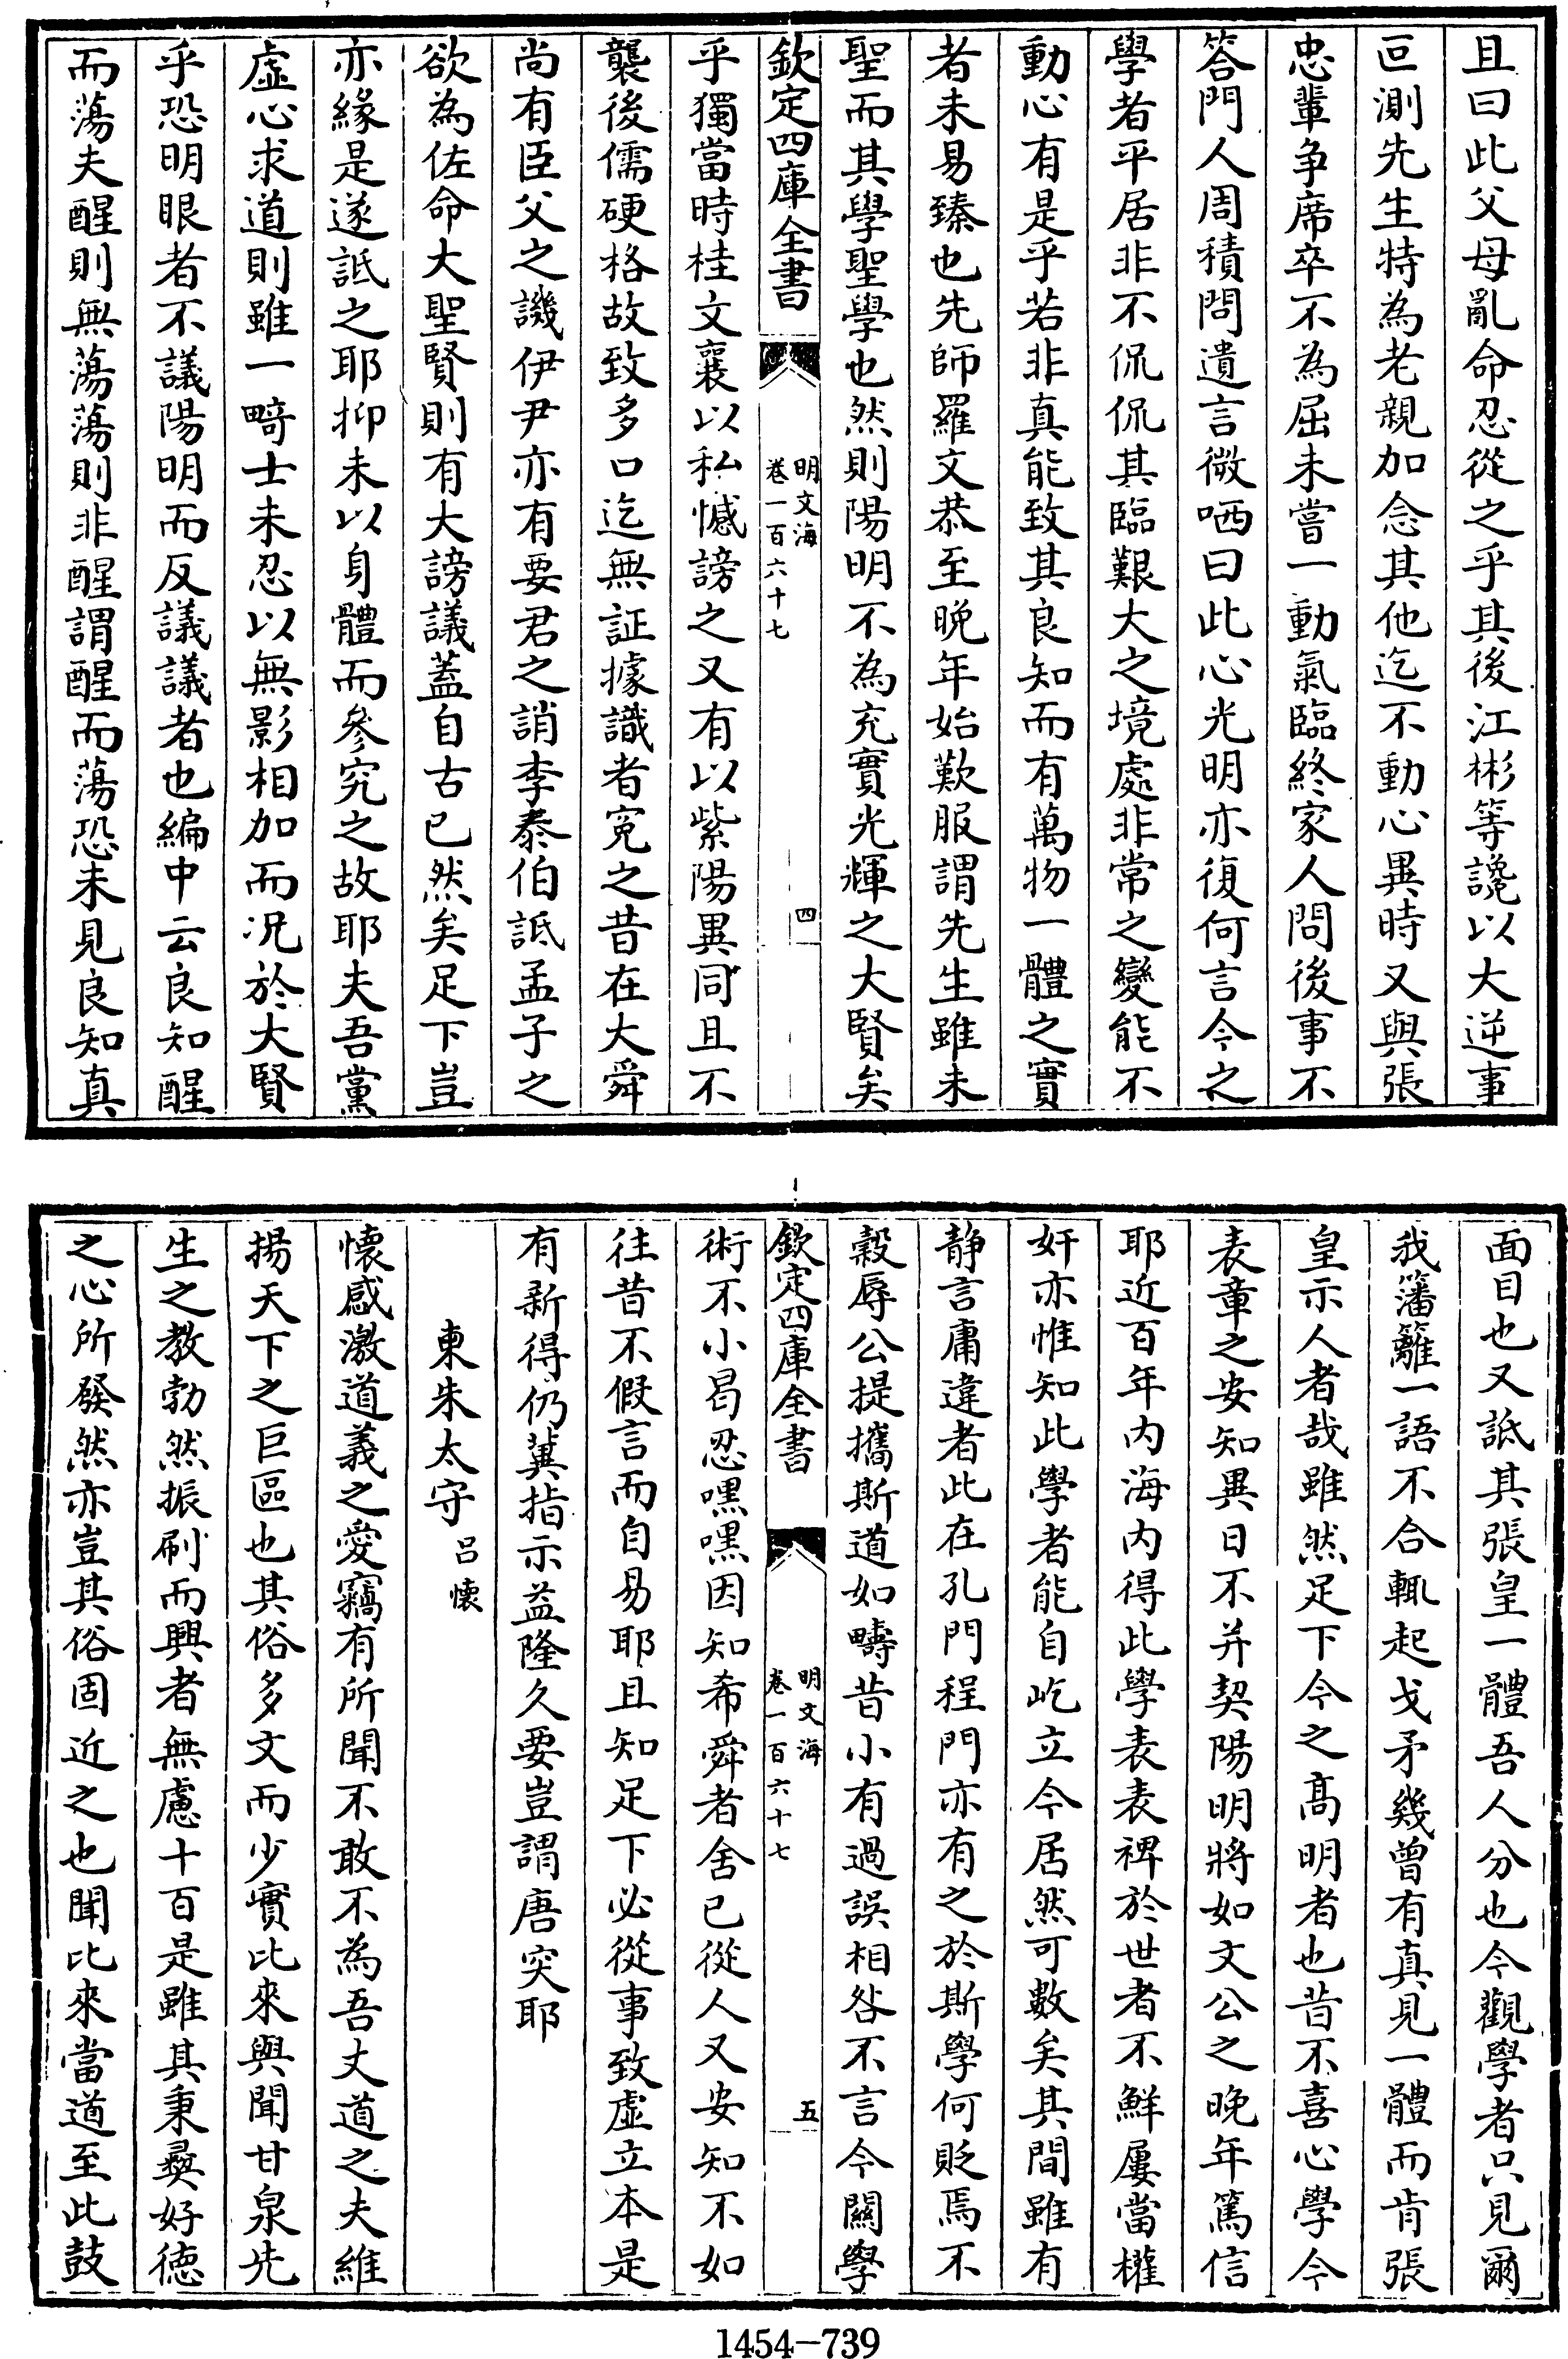 且曰此父母亂命忍從之乎其後江彬等讒以大逆事
叵測先生特為老親加念其他迄不動心異時又與張
忠輩争席卒不為屈未嘗一動氣臨終家人問後事不
答門人周積問遺言微哂曰此心光明亦復何言今之
學者平居非不侃侃其臨艱大之境處非常之變能不
動心有是乎若非真能致其良知而有萬物一體之實
者未易臻也先師羅文恭至晚年始歎服謂先生雖未
聖而其學聖學也然則陽明不為充實光輝之大賢矣
欽定四庫全書
明文海
卷一百六十七
四
乎獨當時桂文襄以私憾謗之又有以紫陽異同且不
襲後儒硬格故致多口迄無証據識者寃之昔在大舜
尚有臣父之譏伊尹亦有要君之誚李泰伯詆孟子之
欲為佐命大聖賢則有大謗議蓋自古已然矣足下豈
亦緣是遂詆之耶抑未以身體而參究之故耶夫吾黨
虛心求道則雖一畸士未忍以無影相加而况於大賢
乎恐明眼者不議陽明而反議議者也編中云良知醒
而蕩夫醒則無蕩蕩則非醒謂醒而蕩恐未見良知真
面目也又詆其張皇一體吾人分也今觀學者只見爾
我籓籬一語不合輒起戈矛幾曾有真見一體而肯張
皇示人者哉雖然足下今之髙明者也昔不喜心學今
表章之安知異日不并契陽明將如文公之晚年篤信
耶近百年内海内得此學表表裨於世者不鮮屢當權
奸亦惟知此學者能自屹立今居然可數矣其間雖有
静言庸違者此在孔門程門亦有之於斯學何貶焉不
穀辱公提攜斯道如疇昔小有過誤相咎不言今闗學
欽定四庫全書
明文海
卷一百六十七
五
術不小曷忍嘿嘿因知希舜者舍已從人又安知不如
往昔不假言而自易耶且知足下必從事致虛立本是
有新得仍冀指示益隆久要豈謂唐突耶
東朱太守 呂懷
懷感激道義之愛竊有所聞不敢不為吾丈道之夫維
揚天下之巨區也其俗多文而少實比來與聞甘泉先
生之教勃然振刷而興者無慮十百是雖其秉彝好徳
之心所發然亦豈其俗固近之也聞比來當道至此鼓
1454—739